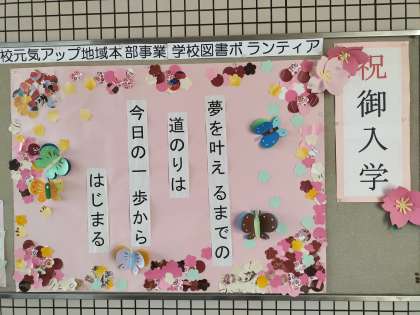 校元気アップ地域本部事業 学校図書ボランティア
祝
御入学
夢を叶えるまでの
道のりは
今日の一歩から
はじまる